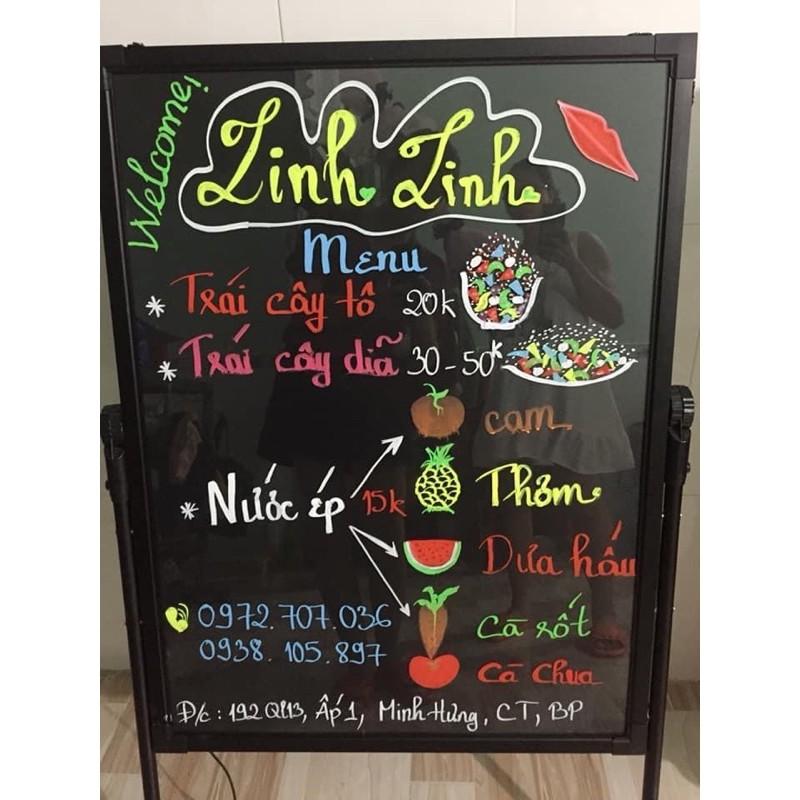 Welcome!
Linh Linh
Menu
* Trái cây tô 20k
* Trái cây dĩa 30-50k
cam
* Nước ép 15k Thơm
Dưa hấu
0972.707.036 Cà rốt
0938.105.897 Cà Chua
Đ/c: 192 Ql13, Ấp 1, Minh Hưng, CT, BP